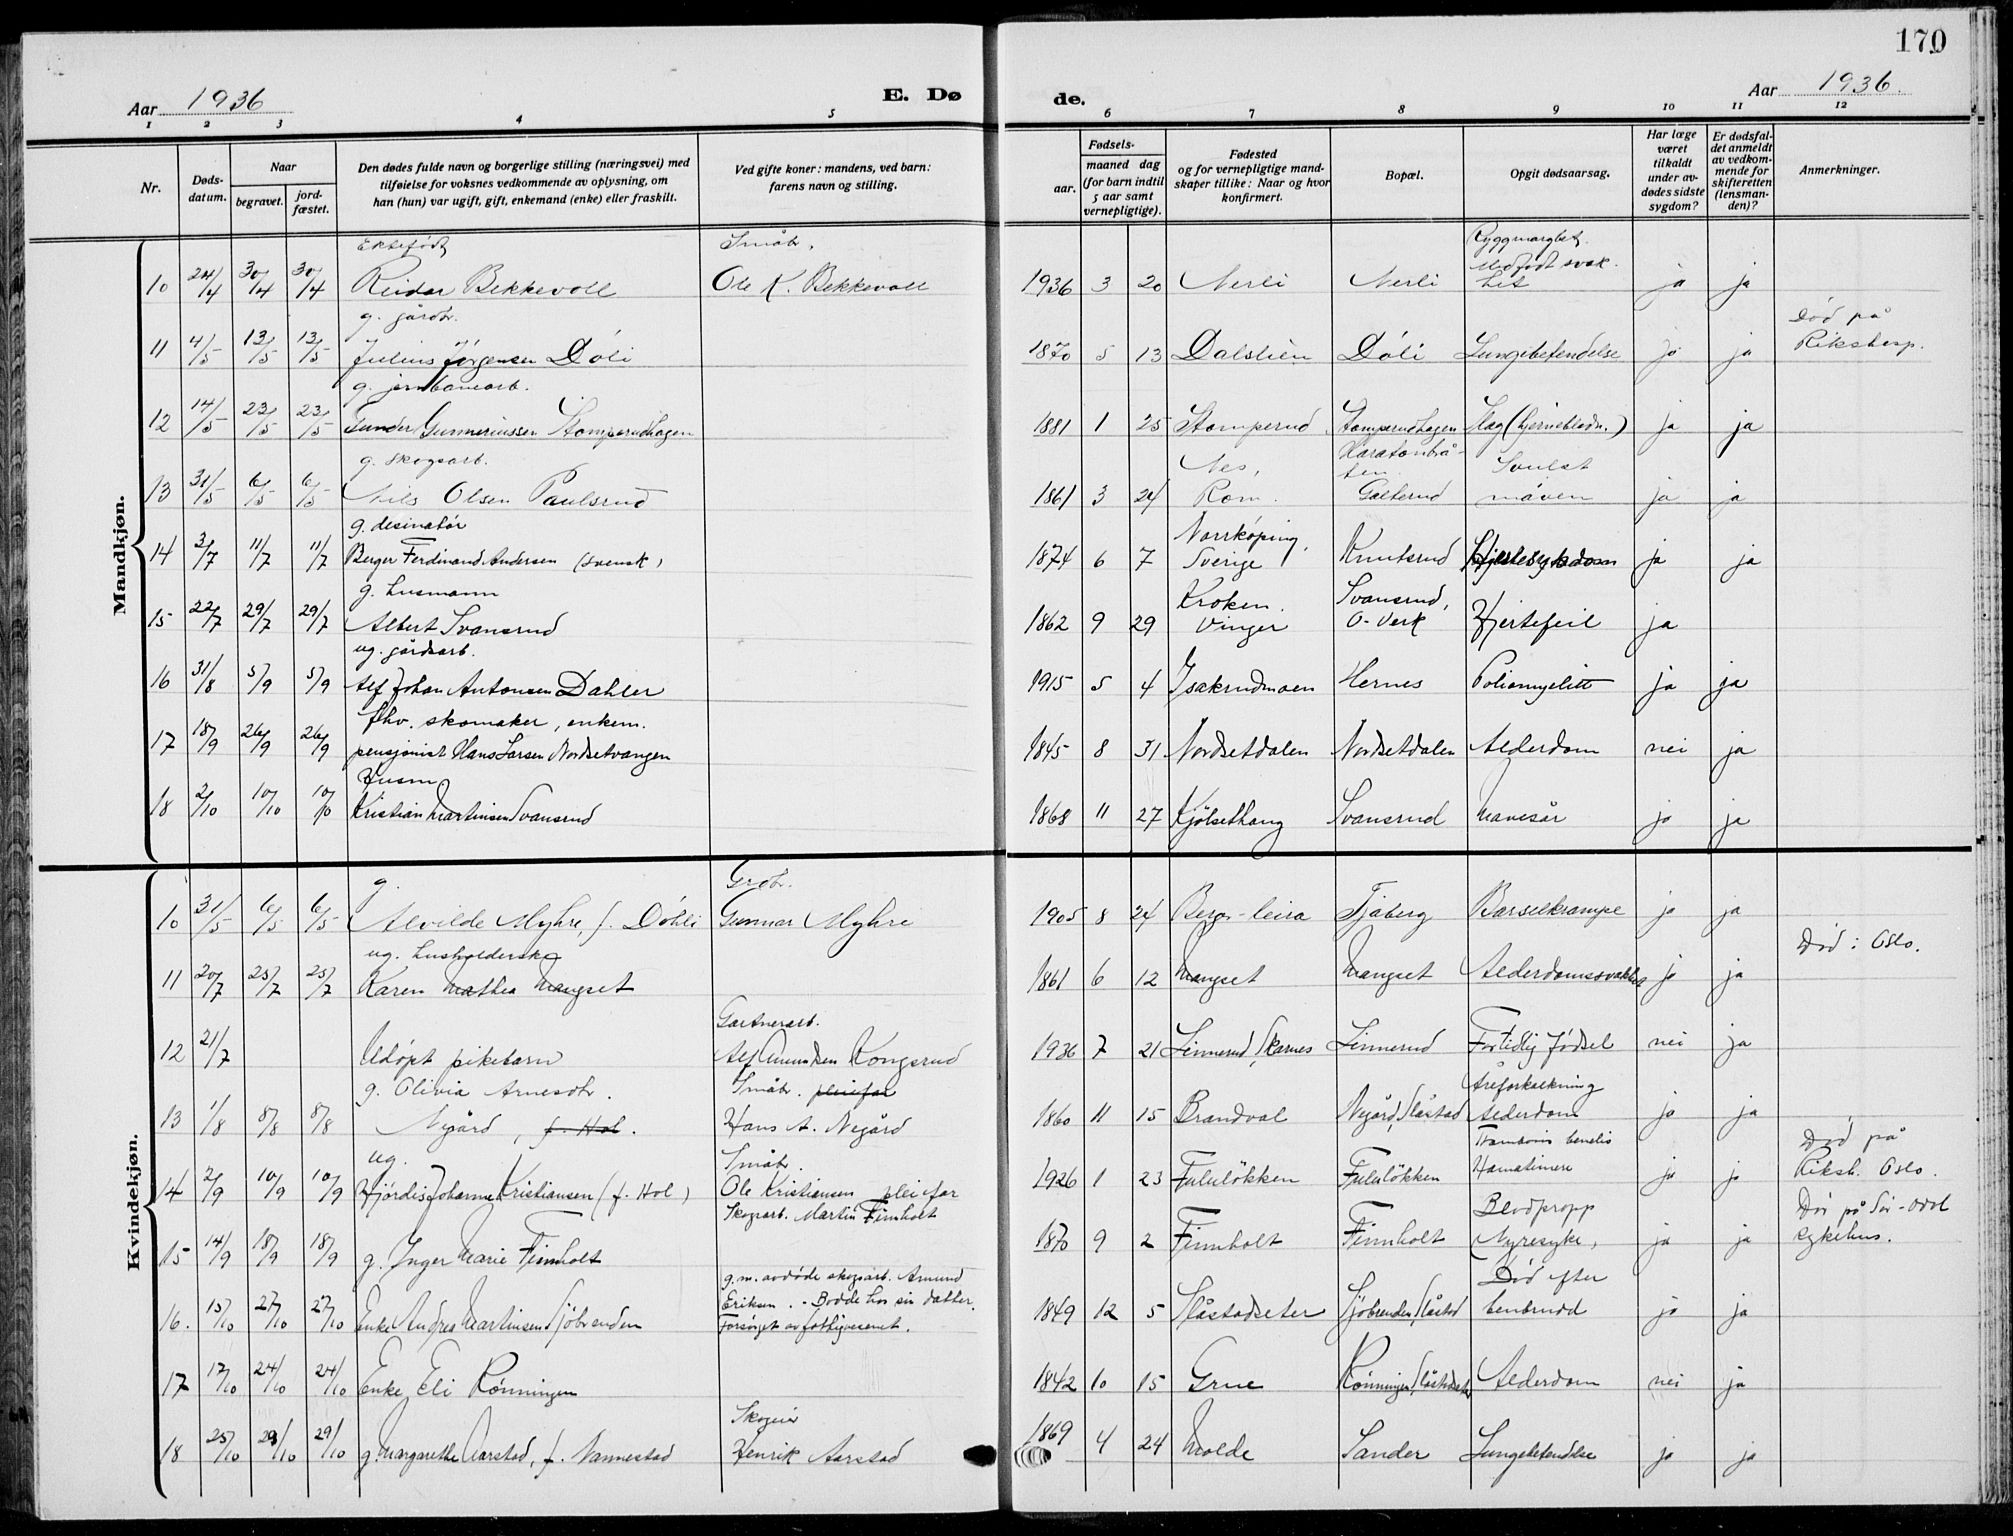 170
Aar 1936 E. Dø de. Aar 1936.
1 2 3 4 5 6 7 8 9 10 11 12
Nr.
Døds-
datum.
Naar
begravet.
jord-
fæstet.
Den dødes fulde navn og borgerlige stilling (næringsvei) med
tilføielse for voksnes vedkommende av oplysning, om
han (hun) var ugift, gift, enkemand (enke) eller fraskilt.
Ved gifte koner: mandens, ved barn:
farens navn og stilling.
Fødsels-
aar.
maaned dag
(for barn indtil
5 aar samt
vernepligtige).
Fødested
og for vernepligtige mand-
skaper tillike: Naar og hvor
konfirmert.
Bopæl.
Opgit dødsaarsag.
Har læge
været
tilkaldt
under av-
dødes sidste
sygdom?
Er dødsfal-
det anmeldt
av vedkom-
mende for
skifteretten
(lensman-
den)?
Anmerkninger.
Mandkjøn.
Ektefødt Småbr. Ryggmargbet.
Medfødt svak-
10 24/4 30/4 30/4 Reidar Bekkevoll Ole K. Bekkevoll 1936 3 20 Nerli Nerli het ja ja
g. gårdbr. Død på
11 4/5 13/5 13/5 Julius Jørgensen Döli 1870 5 13 Dalslien Döli Lungebetendelse ja ja Rikshosp.
g. jernbanearb.
12 14/5 23/5 23/5 Gunder Gunneriussen Stomperudhagen 1881 1 25 Stomperud Stomperudhagen Slag (hjerneblødn.) ja ja
g. skogsarb. Nes, Svulst
13 31/5 6/5 6/5 Nils Olsen Paulsrud 1861 3 24 Rom. Galterud maven ja ja
g. desinatør Norrköping,
14 3/7 11/7 11/7 Berger Ferdinand Andersen (svensk) 1874 6 7 Sverige Knutsrud Hjertesykdom ja ja
g. husmann Kroken. Svansrud,
15 22/7 29/7 29/7 Albert Svansrud 1862 9 29 Vinger O-Verk Hjertefeil ja
ug. gårdsarb.
16 31/8 5/9 5/9 Alf Johan Antonsen Dahler 1915 5 4 Isakrudmoen Hernes Poliomyelitt ja ja
fhv. skomaker, enkem.
17 18/9 26/9 26/9 pensjonist Hans Larsen Nordsetvangen 1845 8 31 Nordsetdalen Nordsetdalen Alderdom nei ja
Husm
18 2/10 10/10 10/10 Kristian Martinsen Svansrud 1868 11 27 Kjölsethaug Svansrud Mavesår ja ja
Kvindekjøn.
g. Grdbr.
10 31/5 6/5 6/5 Alvilde Myhre, f. Döhli Gunnar Myhre 1905 8 24 Berger-leira Tjåberg Barselkrampe ja ja
ug. husholderske Död i Oslo.
11 20/7 25/7 25/7 Karen Mathea Mangset 1861 6 12 Mangset Mangset Alderdomssvakhet ja ja
Gartnerarb.
12 21/7 Udöpt pikebarn Alf Amundsen Kongsrud 1936 7 21 Linnerud, Skarnes Linnerud For tidlig fødsel nei ja
g. Olivia Arnesdtr. Småbr. pleiefar Åreforkalkning
13 1/8 8/8 8/8 Nygård, f. Hol. Hans A. Nygård 1860 11 15 Brandval Nygård, Slåstad Alderdom ja ja
ug. Småbr. Död på
14 2/9 10/9 10/9 Hjördis Johanne Kristiansen (f. Hol) Ole Kristiansen pleiefar 1926 1 23 Fululökken Fululökken ja ja Riksh. Oslo.
Skogsarb. Martin Finnholt Blodpropp Dör på Sör-Odal
15 14/9 18/9 18/9 g. Inger Marie Finnholt 1870 9 2 Finnholt Finnholt Nyresyke, ja ja sykehus.
g. m. avdøde skogsarb. Amund Död efter
16. 15/10 27/10 27/10 Enke Andrea Martinsen Sjöbrenden Eriksen. - Bodde hos sin datter. 1849 12 5 Slåstadseter Sjöbrenden, Slåstad benbrudd ja ja
Forsørget av fattigvesenet.
17 17/10 24/10 24/10 Enke Eli Rönningen 1842 10 15 Grue Rönningen, Slåstadseter Alderdom nei ja
Skogeier
18 25/10 29/10 29/10 g. Margarethe Aarstad, f. Nannestad Henrik Aarstad 1869 4 24 Molde Sander Lungebetendelse ja ja